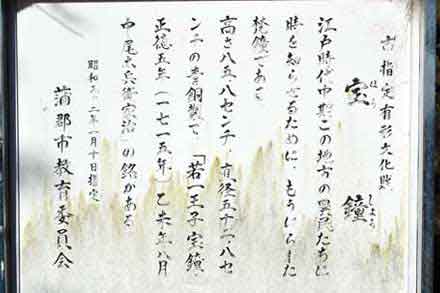 市指定有形文化財
宝鐘
ほうしょう
江戸時代中期この地方の農民たちに
時を知らせるために、もうけられた
梵鐘であって
高さ八五.八センチ、直径五十二.八セ
ンチの青銅製で「若一王子宝鐘
正徳五年(一七一五年)乙未年八月
中尾太兵衛宗治」の銘がある
昭和 二年一月十日指定
蒲郡市教育委員会